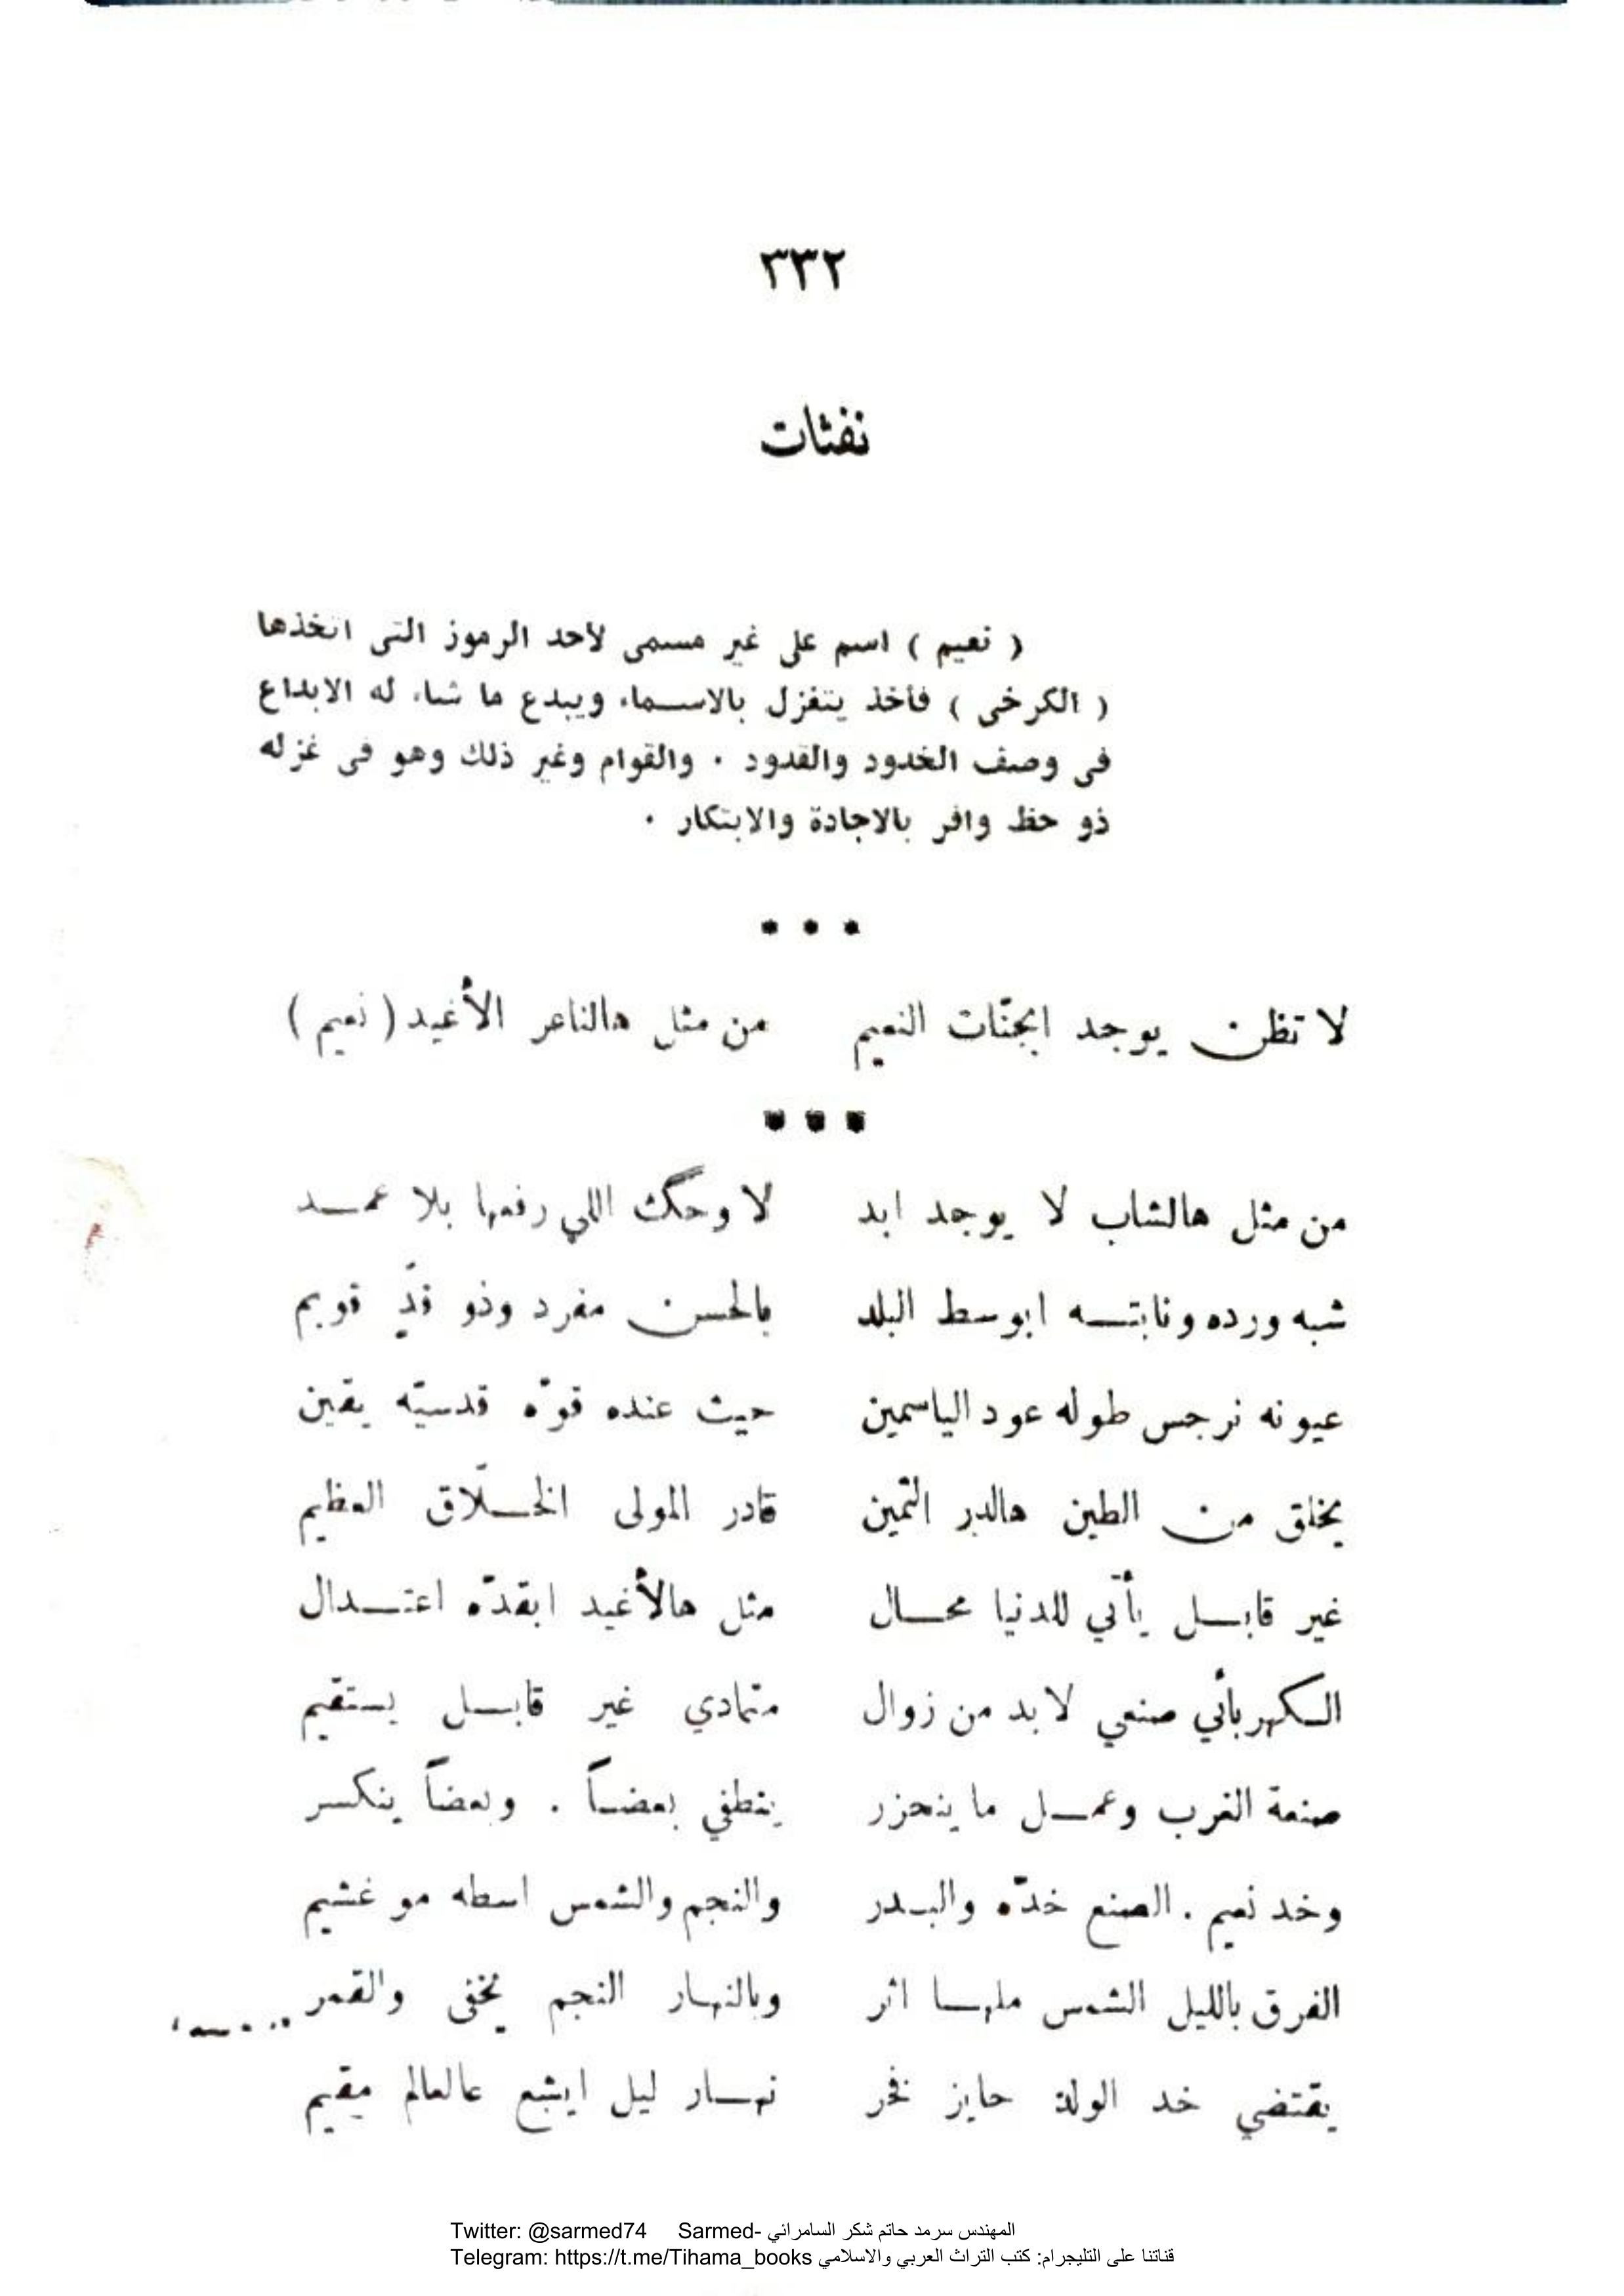 ٣٣٢
نفثات
( نعيم ) اسم على غير مسمى لأحد الرموز التى اتخذها
( الكرخى ) فأخذ يتغزل بالاسماء ويبدع ما شاء له الابداع
فى وصف الخدود والقدود . والقوام وغير ذلك وهو فى غزله
ذو حظ وافر بالاجادة والابتكار .
لا تظن يوجد ابجنّات النعيم من مثل هالناعر الأغيد ( نعيم )
من مثل هالشاب لا يوجد ابد لا وحگك اللي رفعها بلا عمد
شبه ورده ونابتسه ابوسط البلد بالحسن مفرد وذو قدٍّ قويم
عيونه نرجس طوله عود الياسمين حيث عنده قوّه قدسيّه يقين
يخلق من الطين هالدر الثمين قادر المولى الخلّاق العظيم
غير قابل يأتي للدنيا محال مثل هالأغيد ابقدّه اعتدال
الكهربأئي صنعي لا بد من زوال متمادي غير قابل يستقيم
صنعة الغرب وعمل ما ينحزر ينطفي بعضاً . وبعضاً ينكسر
وخد نعيم . الصنع خدّه والبدر والنجم والشمس اسطه مو غشيم
الفرق بالليل الشمس ملها اثر وبالنهار النجم يخفى والقمر
يقتضي خد الولد حايز فخر نهار ليل ايشع عالعالم مقيم
Twitter: @sarmed74 Sarmed- المهندس سرمد حاتم شكر السامرائي
Telegram: https://t.me/Tihama_books قناتنا على التليجرام: كتب التراث العربي والاسلامي